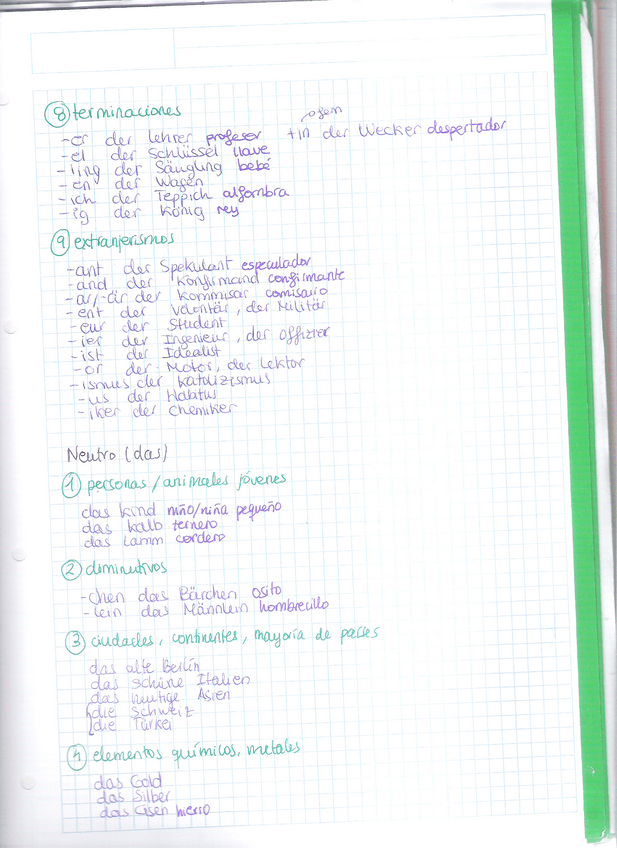 ⑧ terminaciones
-er der Lehrer profesor +in der Wecker despertador
-el der Schlüssel llave
-ling der Säugling bebé
-en der Wagen
-ich der Teppich alfombra
-ig der König rey
⑨ extranjerismos
-ant der Spekulant especulador
-and der Konfirmand confirmante
-ar/-är der Kommisar comisario
-ent der Volontär, der Militär
-eur der Student
-ier der Ingenieur, der Offizier
-ist der Idealist
-or der Motor, der Lektor
-ismus der Katolizismus
-us der Habitus
-iker der Chemiker
Neutro (das)
① personas / animales jóvenes
das Kind niño/niña pequeño
das Kalb ternero
das Lamm cordero
② diminutivos
-chen das Bärchen osito
-lein das Männlein hombrecillo
③ ciudades, continentes, mayoría de países
das alte Berlin
das schöne Italien
das heutige Asien
die Schweiz
die Türkei
④ elementos químicos, metales
das Gold
das Silber
das Eisen hierro